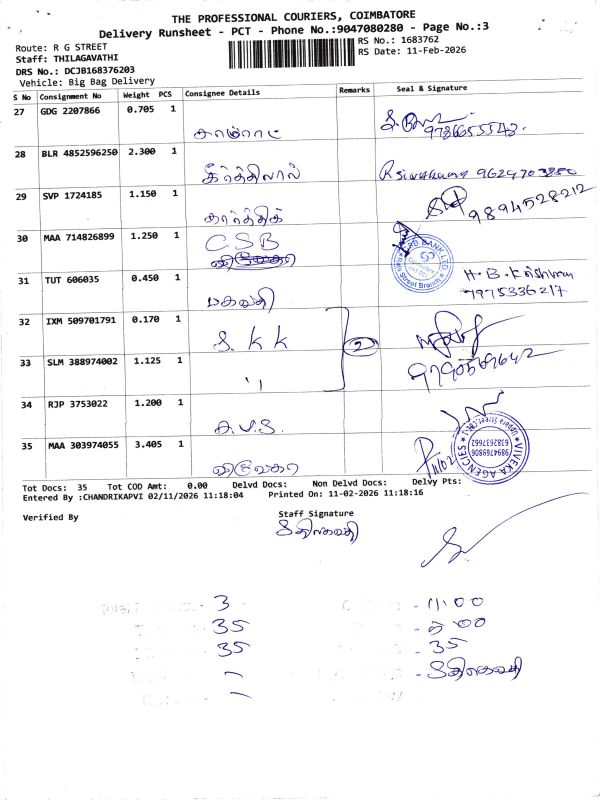 THE PROFESSIONAL COURIERS, COIMBATORE
Delivery Runsheet - PCT - Phone No.:9047080280 - Page No.:3
Route: R G STREET
RS No.: 1683762
Staff: THILAGAVATHI
RS Date: 11-Feb-2026
DRS No.: DCJB168376203
Vehicle: Big Bag Delivery
S No Consignment No Weight PCS Consignee Details Remarks Seal & Signature
27 GDG 2207866 0.705 1
சாம்ராட்
28 BLR 4852596250 2.300 1
கீர்த்திலால்
29 SVP 1724185 1.150 1 9894528212
கார்த்திக்
30 MAA 714826899 1.250 1 CSB
CSB BANK LTD.
31 TUT 606035 0.450 1 H.B.Krishnan
7975336217
32 IXM 509701791 0.170 1
S. K K 2
33 SLM 388974002 1.125 1
"
34 RJP 3753022 1.200 1
க.ப.ந.
35 MAA 303974055 3.405 1
விவேகா
VIVEKA AGENCIES
9894769806
6382637662
Tot Docs: 35 Tot COD Amt: 0.00 Delvd Docs: Non Delvd Docs: Delvy Pts:
Entered By :CHANDRIKAPVI 02/11/2026 11:18:04 Printed On: 11-02-2026 11:18:16
Verified By Staff Signature
திலகவதி
- 3 - 11:00
35
35 - 35
- திலகவதி